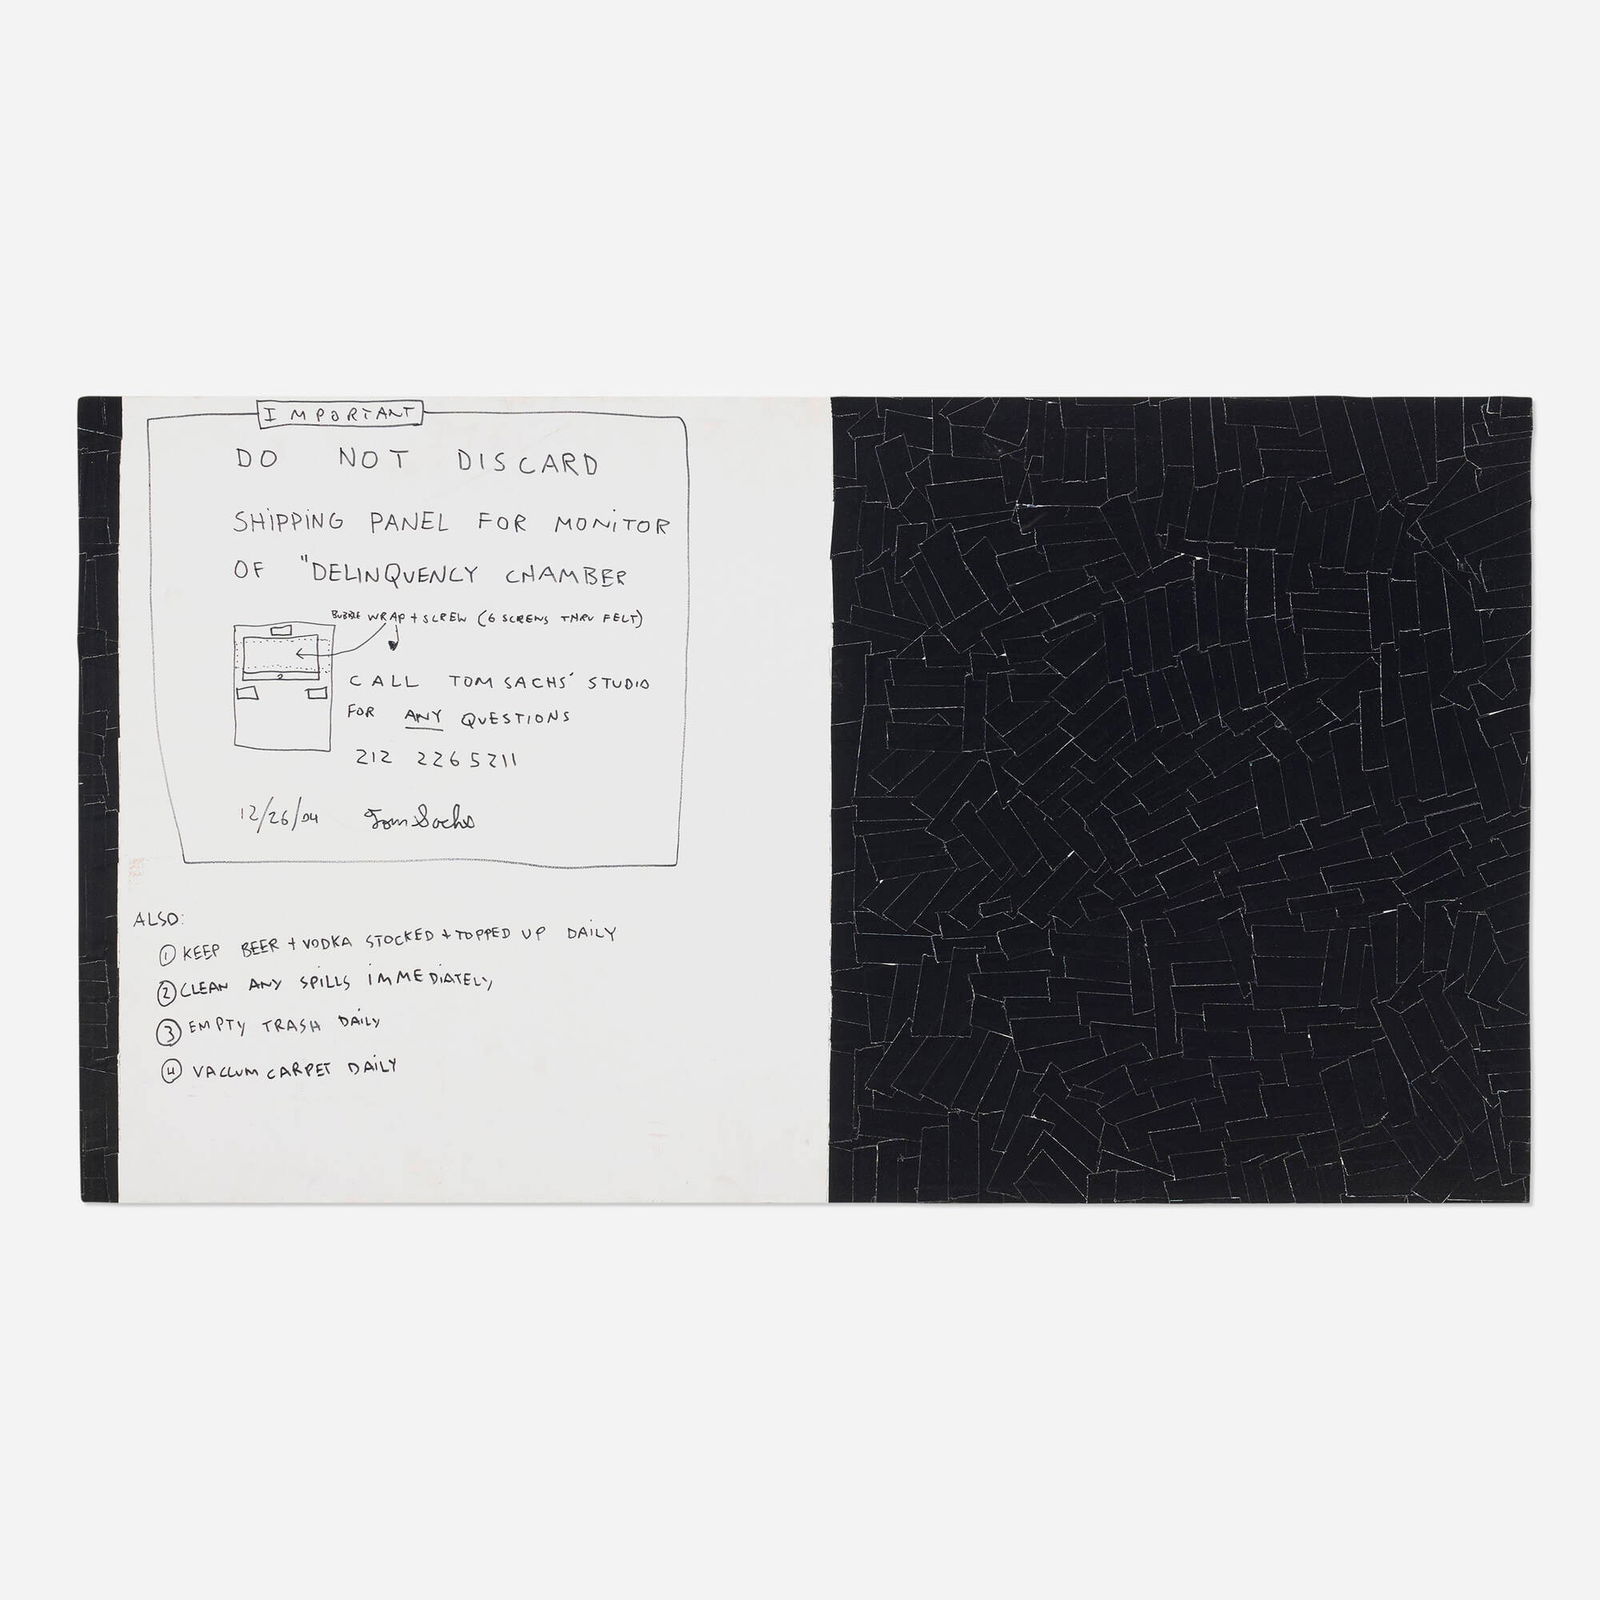 IMPORTANT
DO NOT DISCARD
SHIPPING PANEL FOR MONITOR
OF "DELINQUENCY CHAMBER
BUBBLE WRAP + SCREW (6 SCREWS THRU FELT)
CALL TOM SACHS' STUDIO
FOR ANY QUESTIONS
212 226 5211
12/26/04 Tom Sachs
ALSO:
1 KEEP BEER + VODKA STOCKED + TOPPED UP DAILY
2 CLEAN ANY SPILLS IMMEDIATELY
3 EMPTY TRASH DAILY
4 VACUUM CARPET DAILY